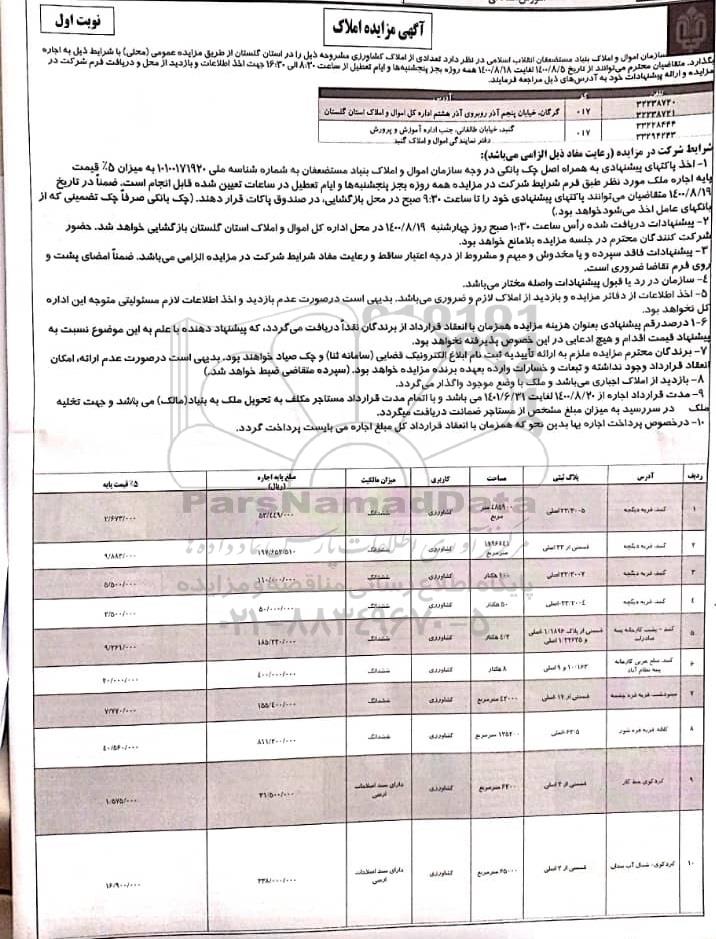 آگهی مزایده املاک
نوبت اول
سازمان اموال و املاک بنیاد مستضعفان انقلاب اسلامی در نظر دارد تعدادی از املاک کشاورزی مشروحه ذیل را در استان گلستان از طریق مزایده عمومی (محلی) با شرایط ذیل به اجاره
بگذارد. متقاضیان محترم می‌توانند از تاریخ ۱۴۰۰/۸/۵ لغایت ۱۴۰۰/۸/۱۸ همه روزه بجز پنجشنبه‌ها و ایام تعطیل از ساعت ۸:۳۰ الی ۱۶:۳۰ جهت اخذ اطلاعات و بازدید از محل و دریافت فرم شرکت در
مزایده و ارائه پیشنهادات خود به آدرس‌های ذیل مراجعه فرمایند.
آدرس
۳۲۲۳۸۷۲۰
۳۲۲۳۸۷۲۱
۰۱۷
گرگان، خیابان پنجم آذر روبروی آذر هشتم اداره کل اموال و املاک استان گلستان
۳۳۲۲۸۴۴۴
۳۳۲۹۴۲۴۳
۰۱۷
گنبد، خیابان طالقانی، جنب اداره آموزش و پرورش
دفتر نمایندگی اموال و املاک گنبد
شرایط شرکت در مزایده (رعایت مفاد ذیل الزامی می‌باشد):
۱- اخذ پاکتهای پیشنهادی به همراه اصل چک بانکی در وجه سازمان اموال و املاک بنیاد مستضعفان به شماره شناسه ملی ۱۰۱۰۰۱۷۱۹۲۰ به میزان ۵٪ قیمت
پایه اجاره ملک مورد نظر طبق فرم شرایط شرکت در مزایده همه روزه بجز پنجشنبه‌ها و ایام تعطیل در ساعات تعیین شده قابل انجام است. ضمناً در تاریخ
۱۴۰۰/۸/۱۹ متقاضیان می‌توانند پاکتهای پیشنهادی خود را تا ساعت ۹:۳۰ صبح در محل بازگشایی، در صندوق پاکات قرار دهند. (چک بانکی صرفاً چک تضمینی که از
بانکهای عامل اخذ می‌شود خواهد بود.)
۲- پیشنهادات دریافت شده رأس ساعت ۱۰:۳۰ صبح روز چهارشنبه ۱۴۰۰/۸/۱۹ در محل اداره کل اموال و املاک استان گلستان بازگشایی خواهد شد. حضور
شرکت کنندگان محترم در جلسه مزایده بلامانع خواهد بود.
۳- پیشنهادات فاقد سپرده و یا مخدوش و مبهم و مشروط از درجه اعتبار ساقط و رعایت مفاد شرایط شرکت در مزایده الزامی می‌باشد. ضمناً امضای پشت و
روی فرم تقاضا ضروری است.
۴- سازمان در رد یا قبول پیشنهادات واصله مختار می‌باشد.
۵- اخذ اطلاعات از دفاتر مزایده و بازدید از املاک لازم و ضروری می‌باشد. بدیهی است درصورت عدم بازدید و اخذ اطلاعات لازم مسئولیتی متوجه این اداره
کل نخواهد بود.
۶- ۱ درصد رقم پیشنهادی بعنوان هزینه مزایده همزمان با انعقاد قرارداد از برندگان نقداً دریافت می‌گردد، که پیشنهاد دهنده با علم به این موضوع نسبت به
پیشنهاد قیمت اقدام و هیچ ادعایی در این خصوص پذیرفته نخواهد بود.
۷- برندگان محترم مزایده ملزم به ارائه تأییدیه ثبت نام ابلاغ الکترونیک قضایی (سامانه ثنا) و چک صیاد خواهند بود. بدیهی است درصورت عدم ارائه، امکان
انعقاد قرارداد وجود نداشته و تبعات و خسارات وارده بعهده برنده مزایده خواهد بود. (سپرده متقاضی ضبط خواهد شد.)
۸- بازدید از املاک اجباری می‌باشد و ملک با وضع موجود واگذار می‌گردد.
۹- مدت قرارداد اجاره از ۱۴۰۰/۸/۲۰ لغایت ۱۴۰۱/۶/۳۱ می باشد و با اتمام مدت قرارداد مستاجر مکلف به تحویل ملک به بنیاد(مالک) می باشد و جهت تخلیه
ملک در سررسید به میزان مبلغ مشخص از مستاجر ضمانت دریافت میگردد.
۱۰- درخصوص پرداخت اجاره بها بدین نحو که همزمان با انعقاد قرارداد کل مبلغ اجاره می بایست پرداخت گردد.
ردیف آدرس پلاک ثبتی مساحت کاربری میزان مالکیت مبلغ پایه اجاره (ریال) ۵٪ قیمت پایه
۱ گنبد، قریه دیگچه ۲۲/۳۰۰۵ اصلی ۴۸۵۹۰۰ متر مربع کشاورزی ششدانگ ۵۳/۴۴۹/۰۰۰ ۲/۶۷۳/۰۰۰
۲ گنبد، قریه دیگچه قسمتی از ۲۲ اصلی متر مربع کشاورزی ششدانگ ۱۹۷/۶۵۲/۵۱۰ ۹/۸۸۳/۰۰۰
۳ گنبد، قریه دیگچه ۲۲/۳۰۰۷ اصلی ۱۰۰ هکتار کشاورزی ششدانگ ۱۱۰/۰۰۰/۰۰۰ ۵/۵۰۰/۰۰۰
۴ گنبد، قریه دیگچه ۲۲/۲۰۰۴ اصلی ۵۰ هکتار کشاورزی ششدانگ ۵۰/۰۰۰/۰۰۰ ۲/۵۰۰/۰۰۰
۵ گنبد - پشت کارخانه پنبه قسمتی از پلاک ۱/۱۸۹۶ اصلی و ۱/۲۲۶۲۵ اصلی ۴/۲ هکتار کشاورزی ششدانگ ۱۸۵/۲۲۰/۰۰۰ ۹/۲۶۱/۰۰۰
۶ گنبد، ضلع غربی کارخانه پنبه نظام آباد ۱۰۱۶۳ و ۹ اصلی ۸ هکتار کشاورزی ششدانگ ۴۰۰/۰۰۰/۰۰۰ ۲۰/۰۰۰/۰۰۰
۷ مینودشت قریه قره چشمه قسمتی از ۱۲ اصلی ۴۲۰۰۰ مترمربع کشاورزی ششدانگ ۱۵۵/۴۰۰/۰۰۰ ۷/۷۷۰/۰۰۰
۸ کلاله قریه قره شور ۶۲/۵ اصلی ۱۳۵۲۰۰ مترمربع کشاورزی ششدانگ ۸۱۱/۲۰۰/۰۰۰ ۴۰/۵۶۰/۰۰۰
۹ کردکوی قسمتی از ۳ اصلی ۶۳۰۰ مترمربع کشاورزی دارای سند اصلاحات ارضی ۳۱/۵۰۰/۰۰۰ ۱/۵۷۵/۰۰۰
۱۰ کردکوی- شمال آب بندان قسمتی از ۲ اصلی ۶۵۰۰۰ مترمربع کشاورزی دارای سند اصلاحات ارضی ۳۳۸/۰۰۰/۰۰۰ ۱۶/۹۰۰/۰۰۰
ParsNamadData
مرکز آوری اطلاعات پارس نماد داده ها
پایگاه اطلاع رسانی مناقصه و مزایده
۰۲۱-۸۸۳۴۹۶۷۰-۵